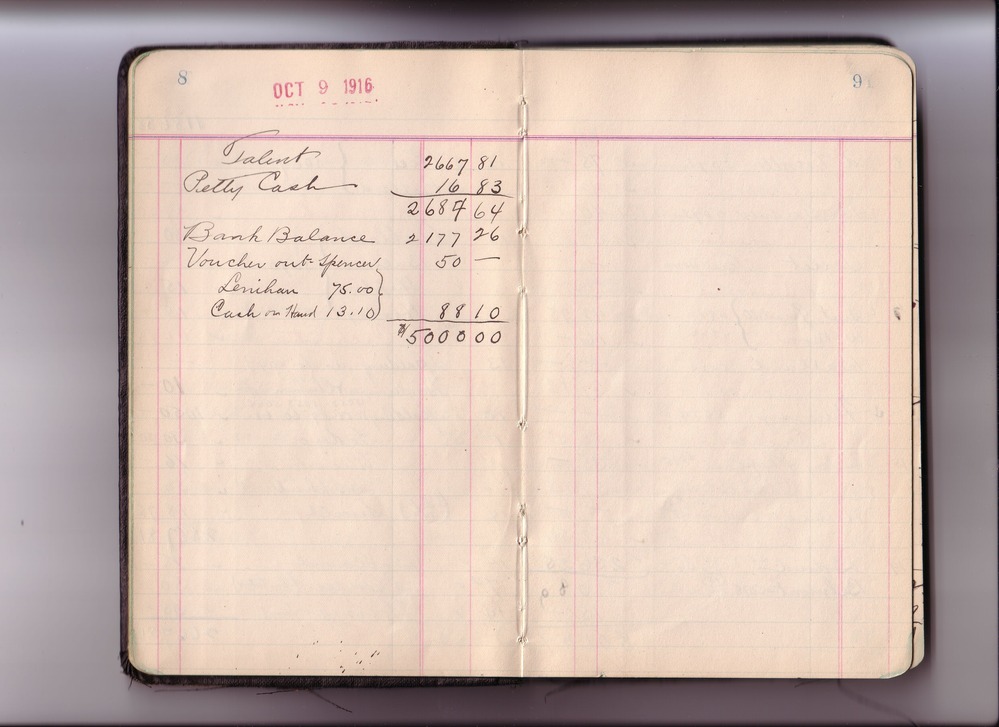 8
OCT 9 1916
9
Talent 2667 81
Petty Cash 16 83
2684 64
Bank Balance 2177 26
Voucher out- Spencer 50 —
Lenihan 75.00
Cash on Hand 13.10 88 10
$5000 00